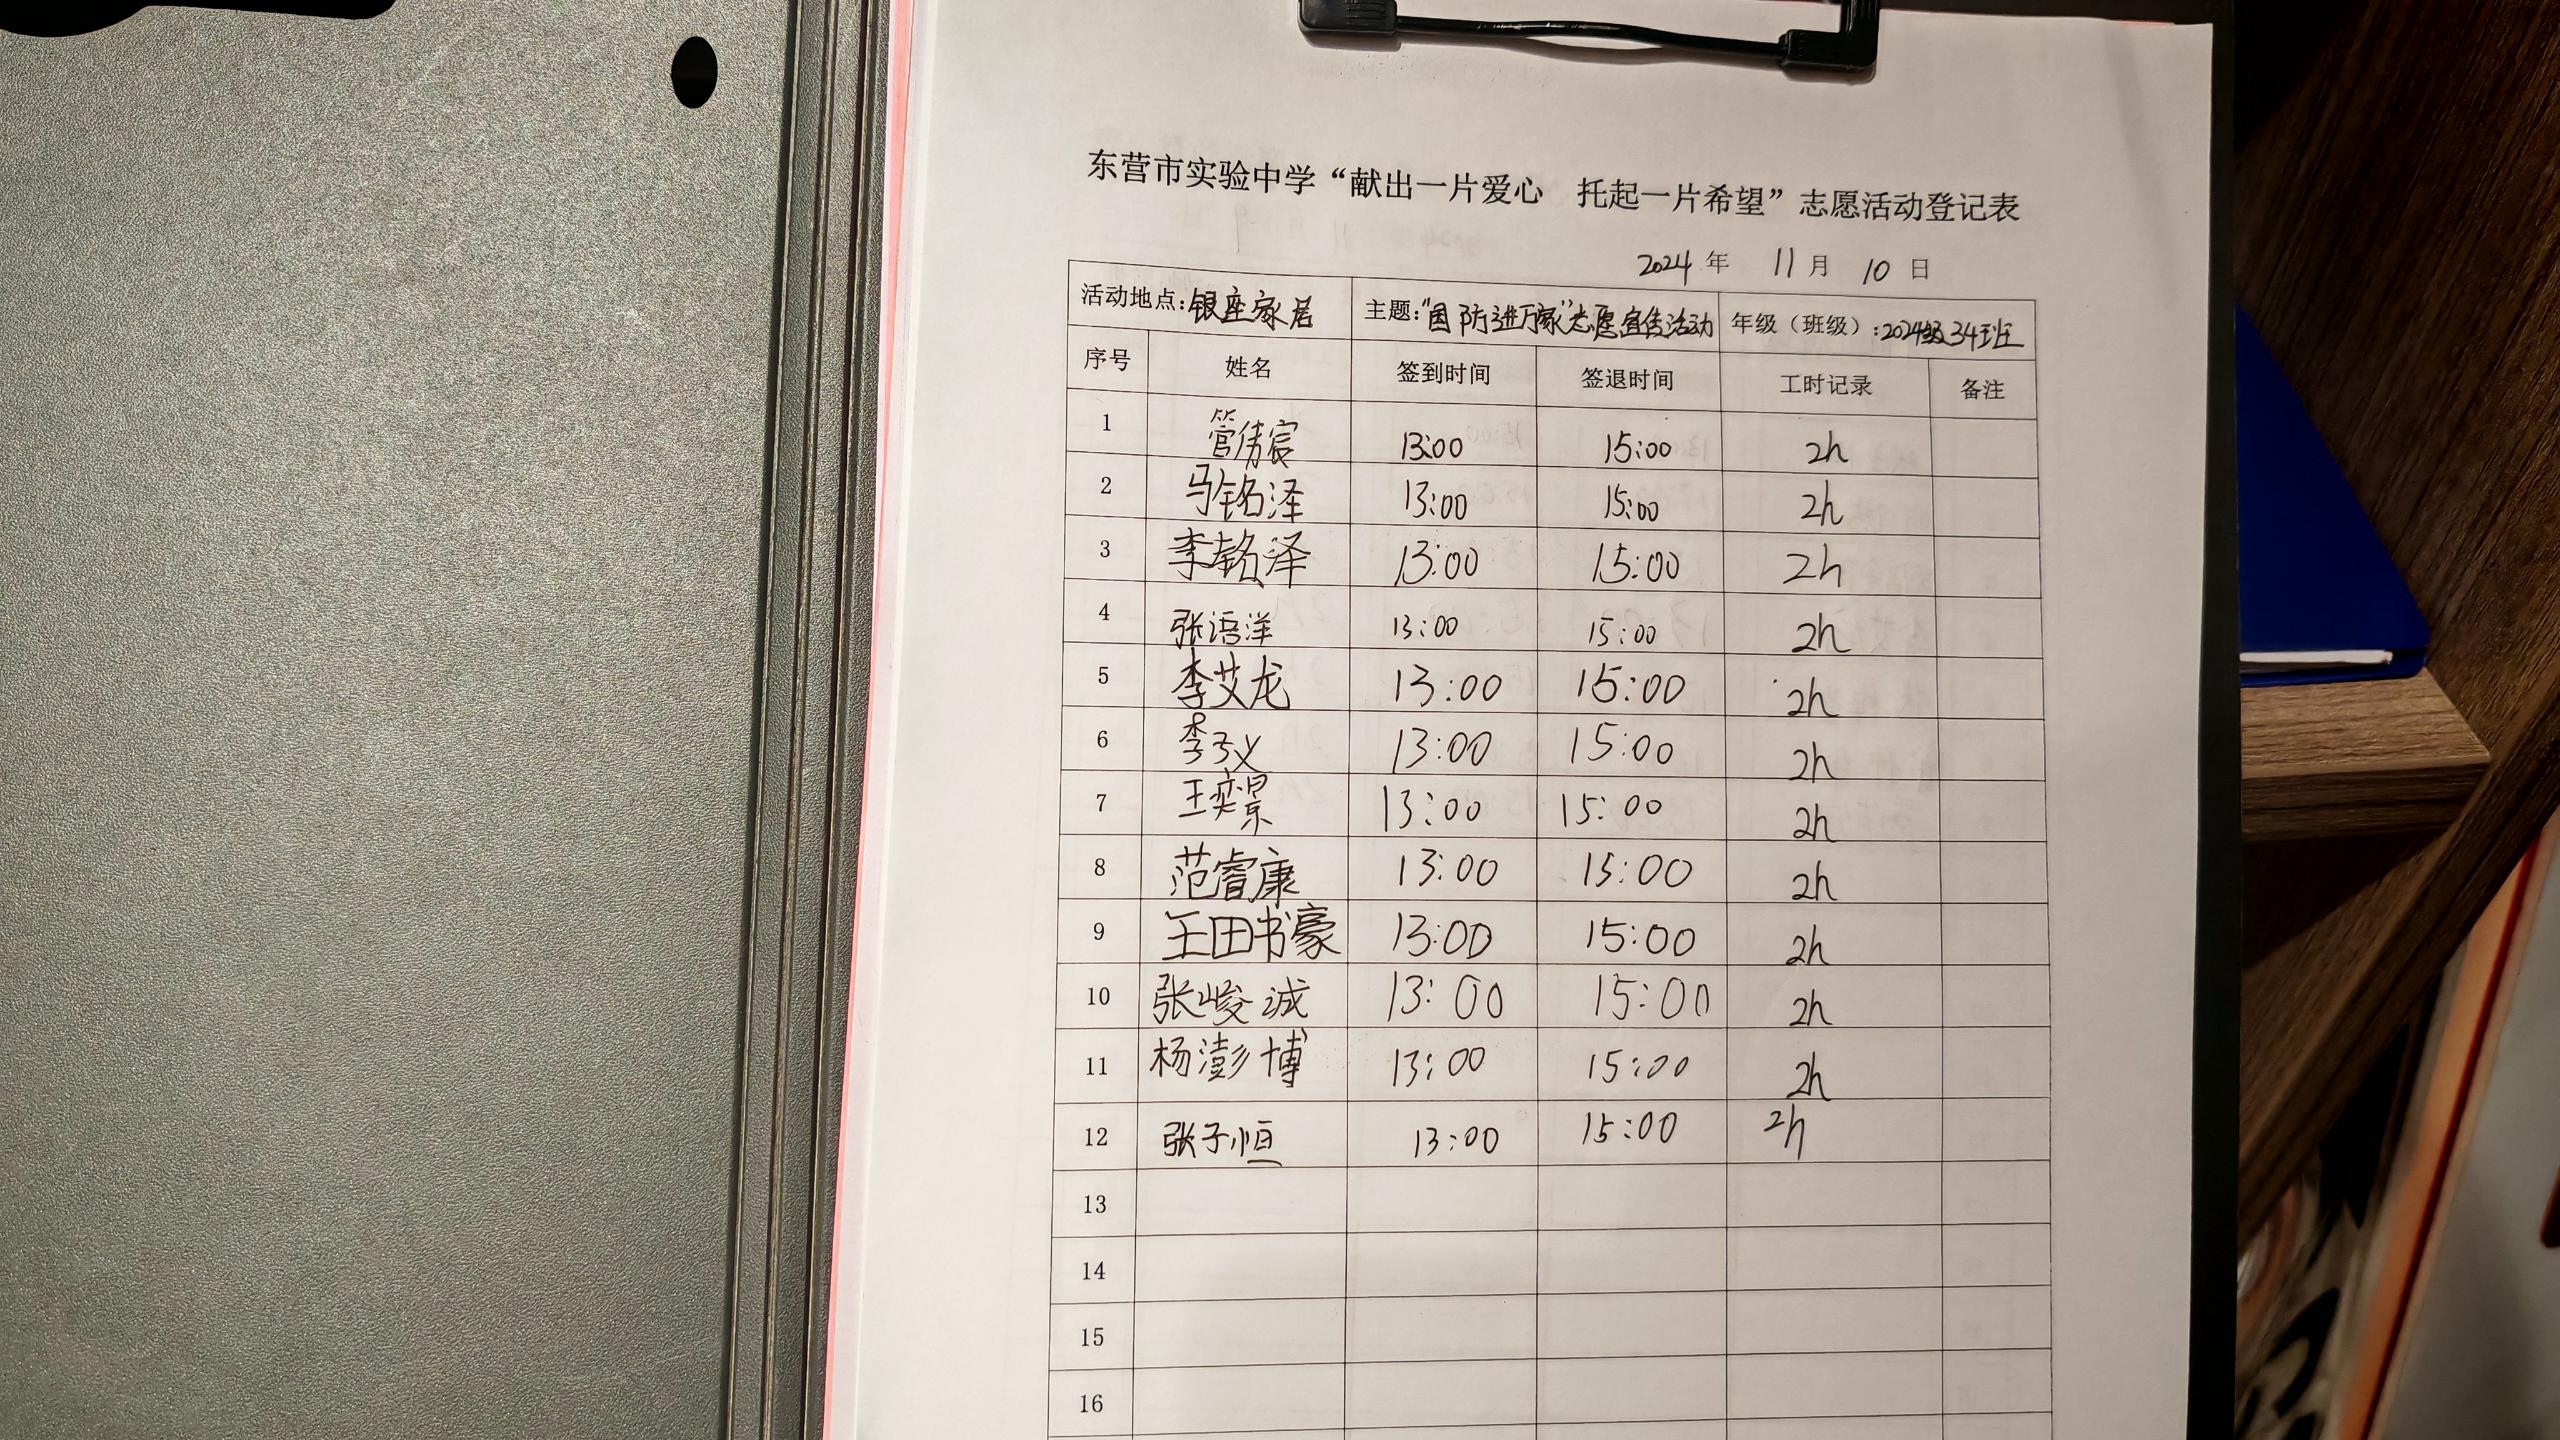 东营市实验中学“献出一片爱心 托起一片希望”志愿活动登记表
2024 年 11 月 10 日
活动地点：银座家居 主题：“国防进万家”志愿宣传活动 年级（班级）：2024级34班
序号 姓名 签到时间 签退时间 工时记录 备注
1 管倩宸 13:00 15:00 2h
2 马铭泽 13:00 15:00 2h
3 李铭泽 13:00 15:00 2h
4 张语洋 13:00 15:00 2h
5 李艾龙 13:00 15:00 2h
6 李子义 13:00 15:00 2h
7 王奕景 13:00 15:00 2h
8 范睿康 13:00 15:00 2h
9 王田书豪 13:00 15:00 2h
10 张峻诚 13:00 15:00 2h
11 杨澎博 13:00 15:00 2h
12 张子恒 13:00 15:00 2h
13
14
15
16